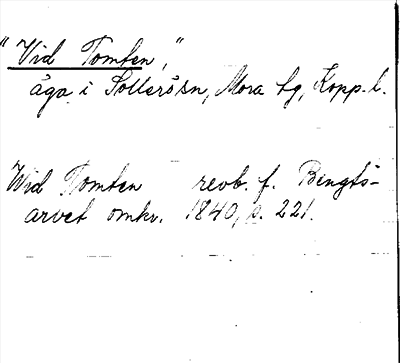 "Vid Tomten,"
åga i Sollerö sn, Mora tg, Kopp. l.
Wid Tomten revb. f. Bengts-
arvet omkr. 1840, s. 221.